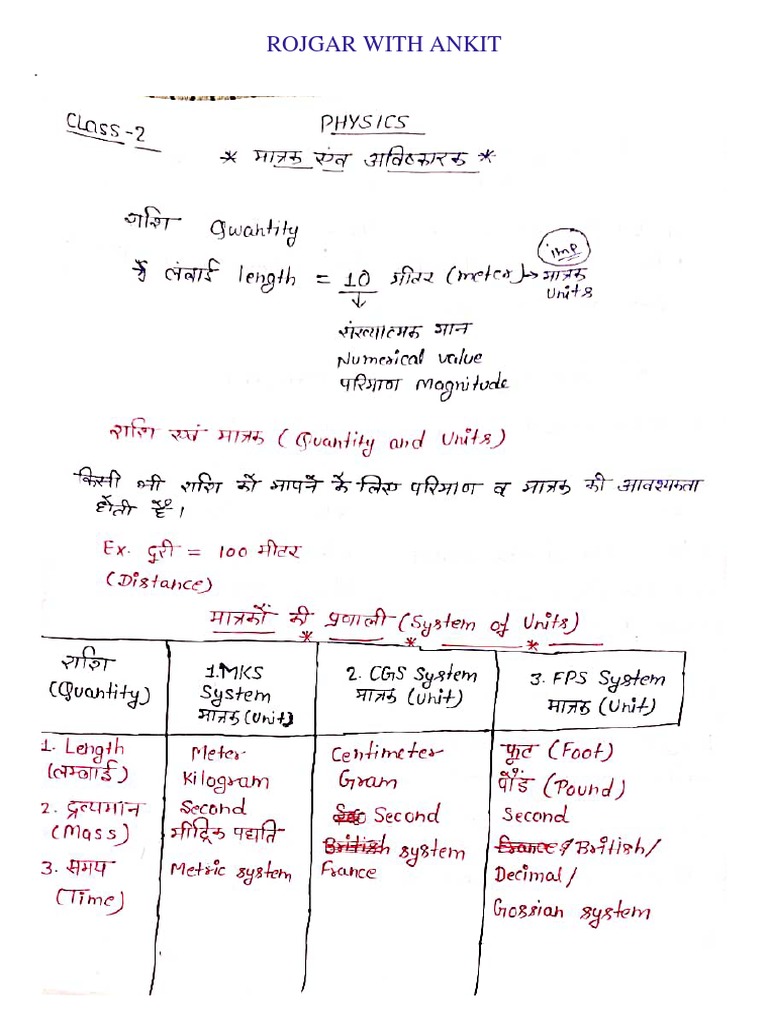 ROJGAR WITH ANKIT
CLASS-2
PHYSICS
* मात्रक एंव अविष्कारक *
राशि Quantity
लंबाई length = 10 मीटर (meter) → मात्रक
imp
Units
संख्यात्मक मान
Numerical value
परिमाण Magnitude
राशि एवं मात्रक (Quantity and Units)
किसी भी राशि को मापने के लिए परिमाण व मात्रक की आवश्यकता
होती है।
Ex. दुरी = 100 मीटर
(Distance)
मात्रकों की प्रणाली (System of Units)
* * *
राशि
(Quantity)
1. MKS
System
मात्रक (Unit)
2. CGS System
मात्रक (Unit)
3. FPS System
मात्रक (Unit)
1. Length
(लम्बाई)
2. द्रव्यमान
(Mass)
3. समय
(Time)
Meter
Kilogram
Second
मीट्रिक पद्यति
Metric system
Centimeter
Gram
Second
British system
France
फूट (Foot)
पौंड (Pound)
Second
France / British/
Decimal/
Gossian system